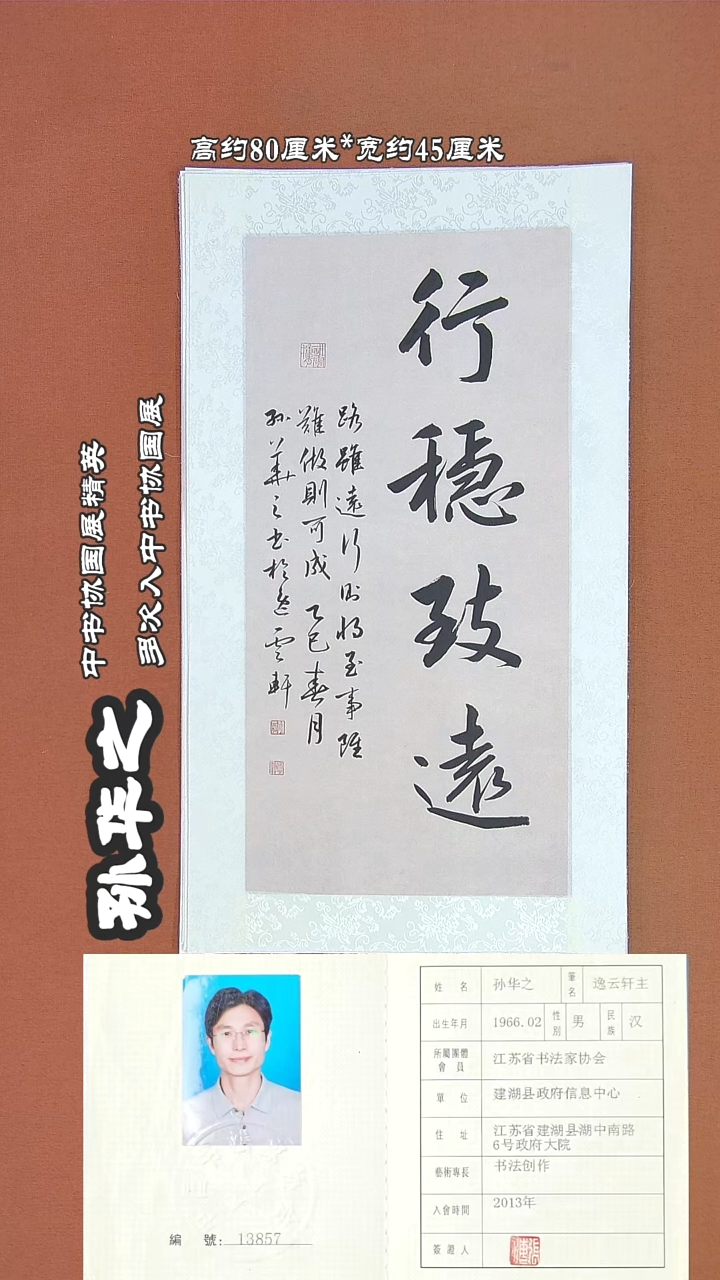 高约80厘米*宽约45厘米
行穩致遠
路雖遠行則將至事雖
難做則可成 乙巳春月
孙華之书於逸雲軒
多次入中书协国展
中书协国展精英
孙华之
姓名 孙华之 筆名 逸云轩主
出生年月 1966.02 性別 男 民族 汉
所屬團體會員 江苏省书法家协会
單位 建湖县政府信息中心
住址 江苏省建湖县湖中南路
6号政府大院
藝術專長 书法创作
入會時間 2013年
簽證人
編號: 13857